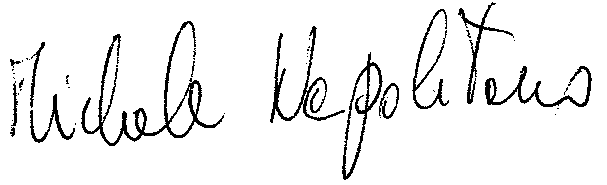 Michele Napolitano